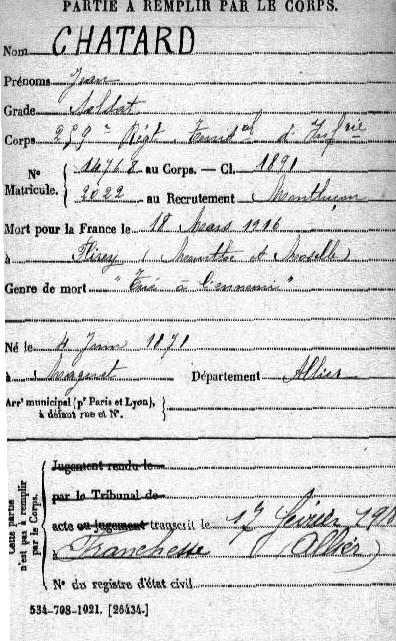 PARTIE À REMPLIR PAR LE CORPS.
Nom CHATARD
Prénoms Jean
Grade Soldat
Corps 259e Régt Territal d'Infrie
N° Matricule. { 14768 au Corps. — Cl. 1891
2022 au Recrutement Montluçon
Mort pour la France le 18 Mars 1916
à Flirey (Meurthe et Moselle)
Genre de mort "Tué à l'ennemi"
Né le 4 Juin 1871
à Magnet Département Allier
Arrt municipal (pr Paris et Lyon), à défaut rue et N°.
Cette partie n'est pas à remplir par le Corps.
Jugement rendu le
par le Tribunal de
acte ou jugement transcrit le 17 février
à Franchesse (Allier)
N° du registre d'état civil
534-708-1921. [26434.]